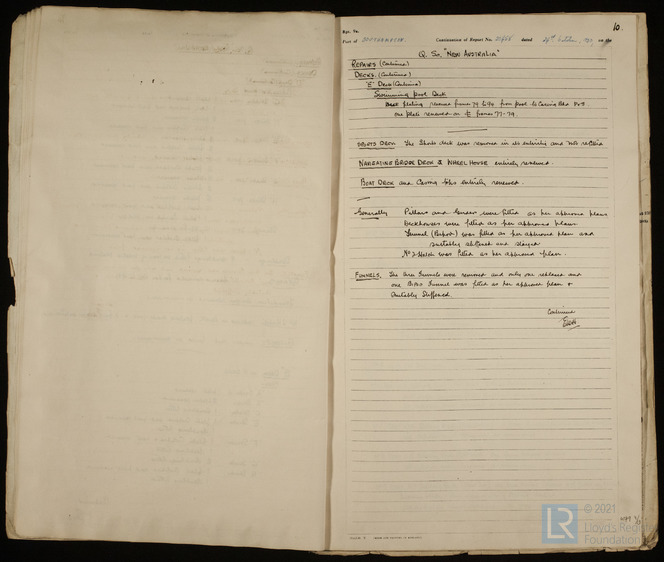 10.
Rpt. 9a.
Port of SOUTHAMPTON. Continuation of Report No. dated on the
Q. Sc. "NEW AUSTRALIA"
REPAIRS (Continued)
DECKS. (Continued)
'E' Deck (Continued)
Swimming Pool Deck
Deck plating renewed frames 74 to from pool to Casing P&S.
One plate renewed on ℄ frames 77-79.
SPORTS DECK The Sports deck was removed in its entirety and not refitted
NAVIGATING BRIDGE DECK & WHEEL HOUSE entirely renewed.
BOAT DECK and Casing tops entirely renewed.
Generally Pillars and Girders were fitted as per approved plans
Deckhouses were fitted as per approved plans
Funnel was fitted as per approved plan and
suitably stiffened and stayed
No 2 Hatch was fitted as per approved plan.
FUNNELS. The funnels were removed and only one replaced and
one Funnel was fitted as per approved plan &
Suitably Stiffened
Continued
© 2021
LR Lloyd's Register
Foundation